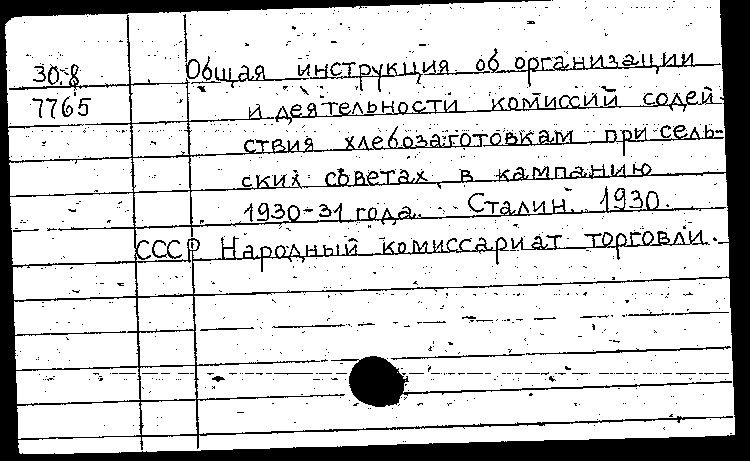 30:8 Общая инструкция об организации
7765 и деятельности комиссий содей-
ствия хлебозаготовкам при сель-
ских советах в кампанию
1930-31 года. Сталин. 1930.
СССР Народный комиссариат торговли.